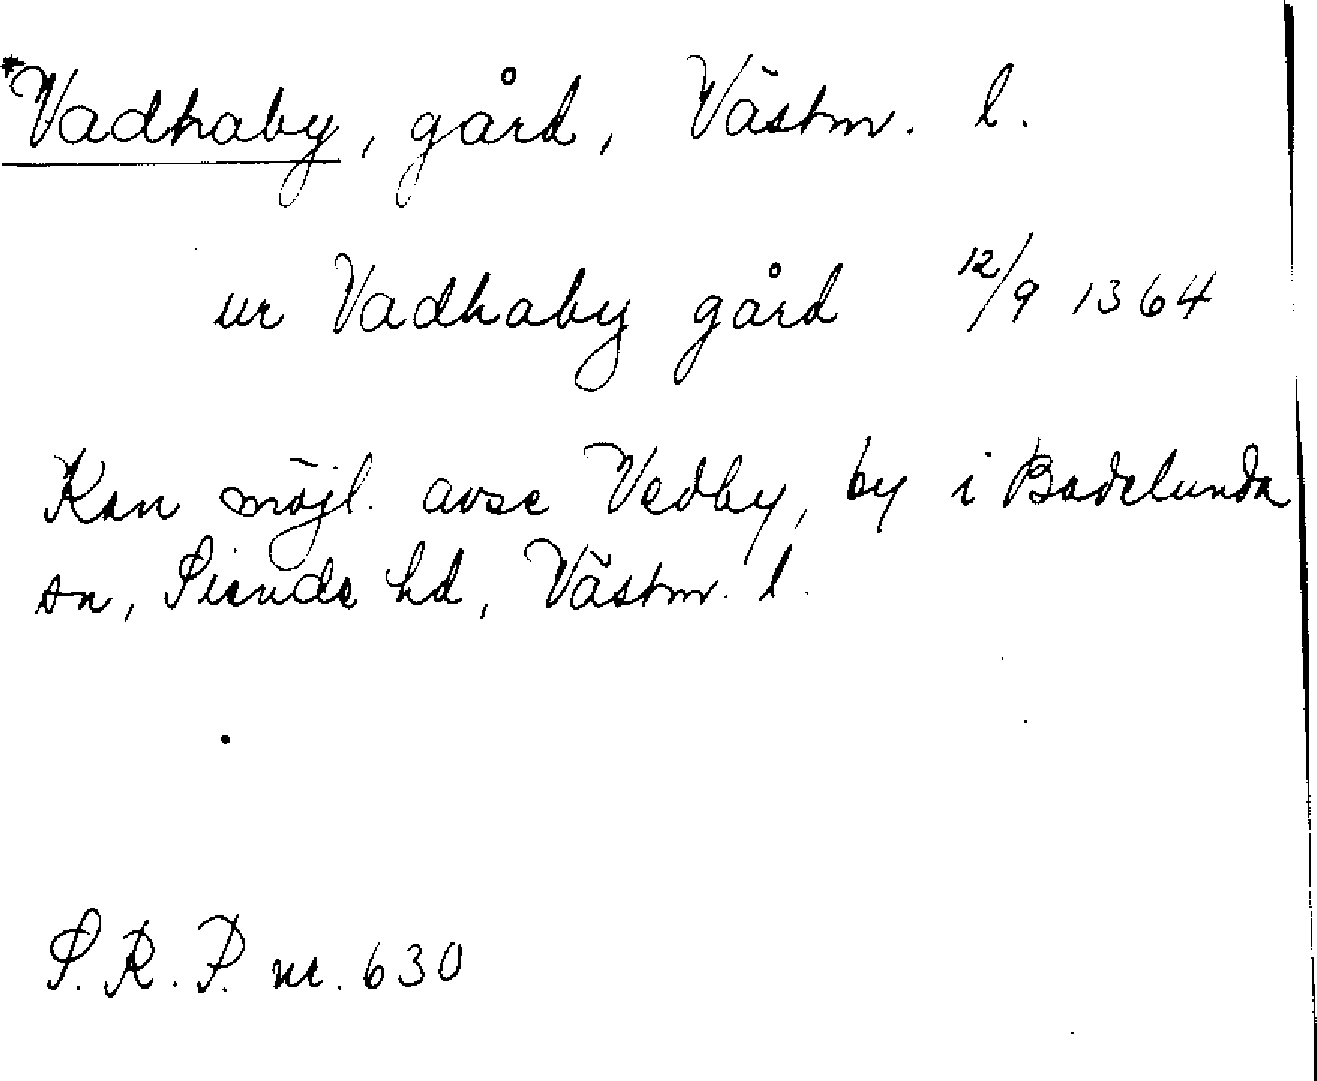 *Vadhaby, gård, Västm. l.
ur Vadhaby gård 12/9 1364
Kan möjl. avse Vedby, by i Badelunda
sn, Siende hd, Västm. l.
S.R.P. nr. 630